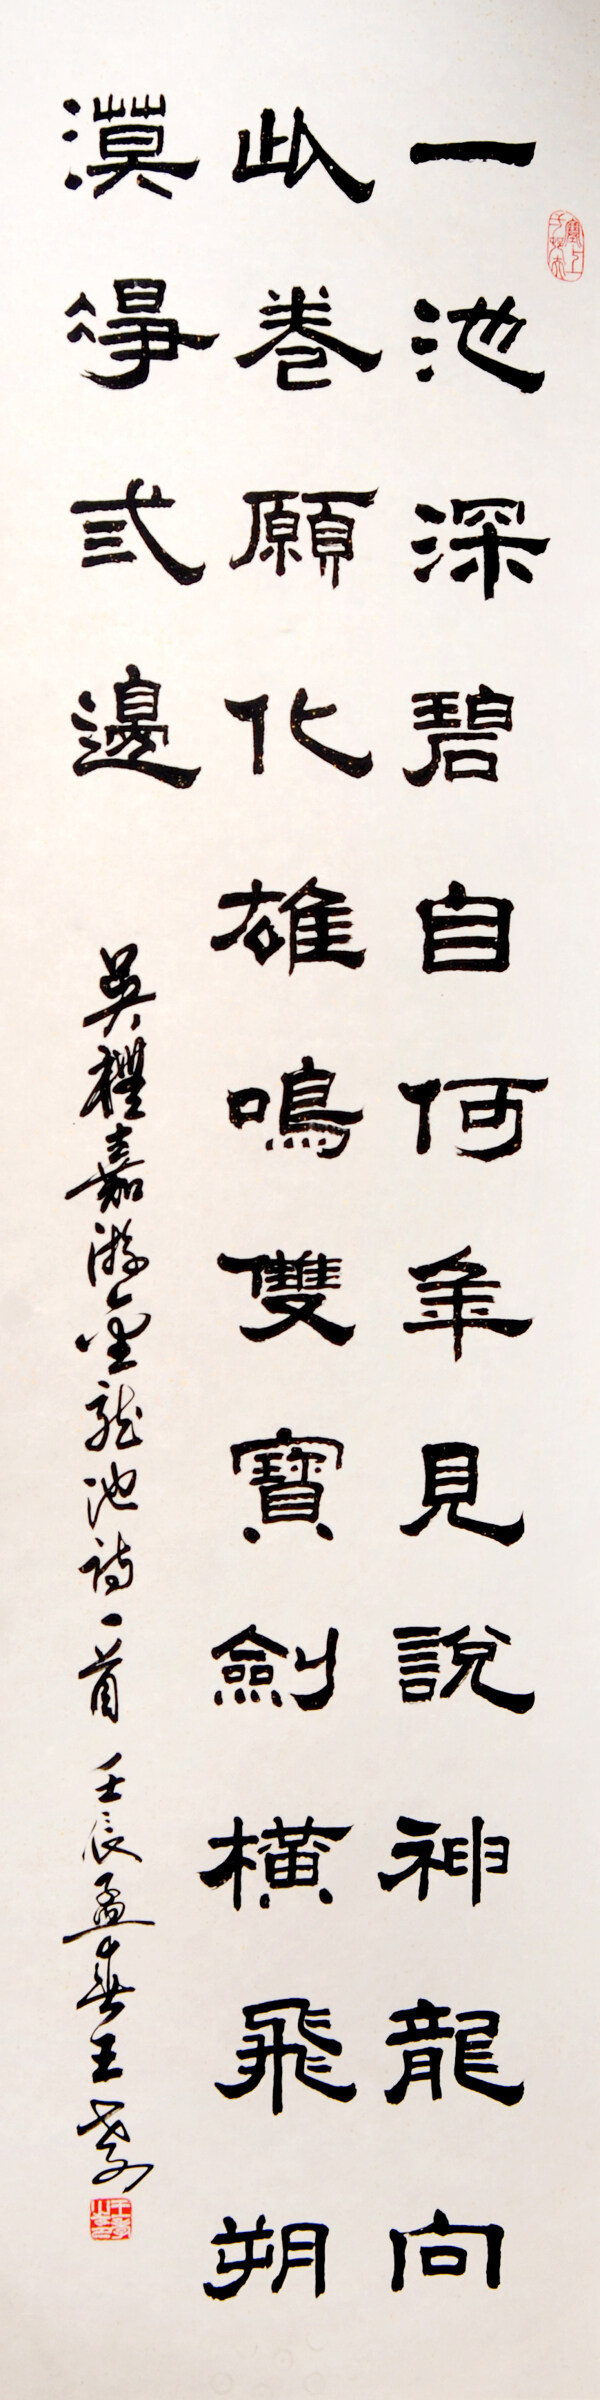 一池深碧自何年見說神龍向
此卷願化雄鳴雙寶劍橫飛朔
漠凈弎邊
吳禮嘉游金龍池詩一首 壬辰孟春王孝